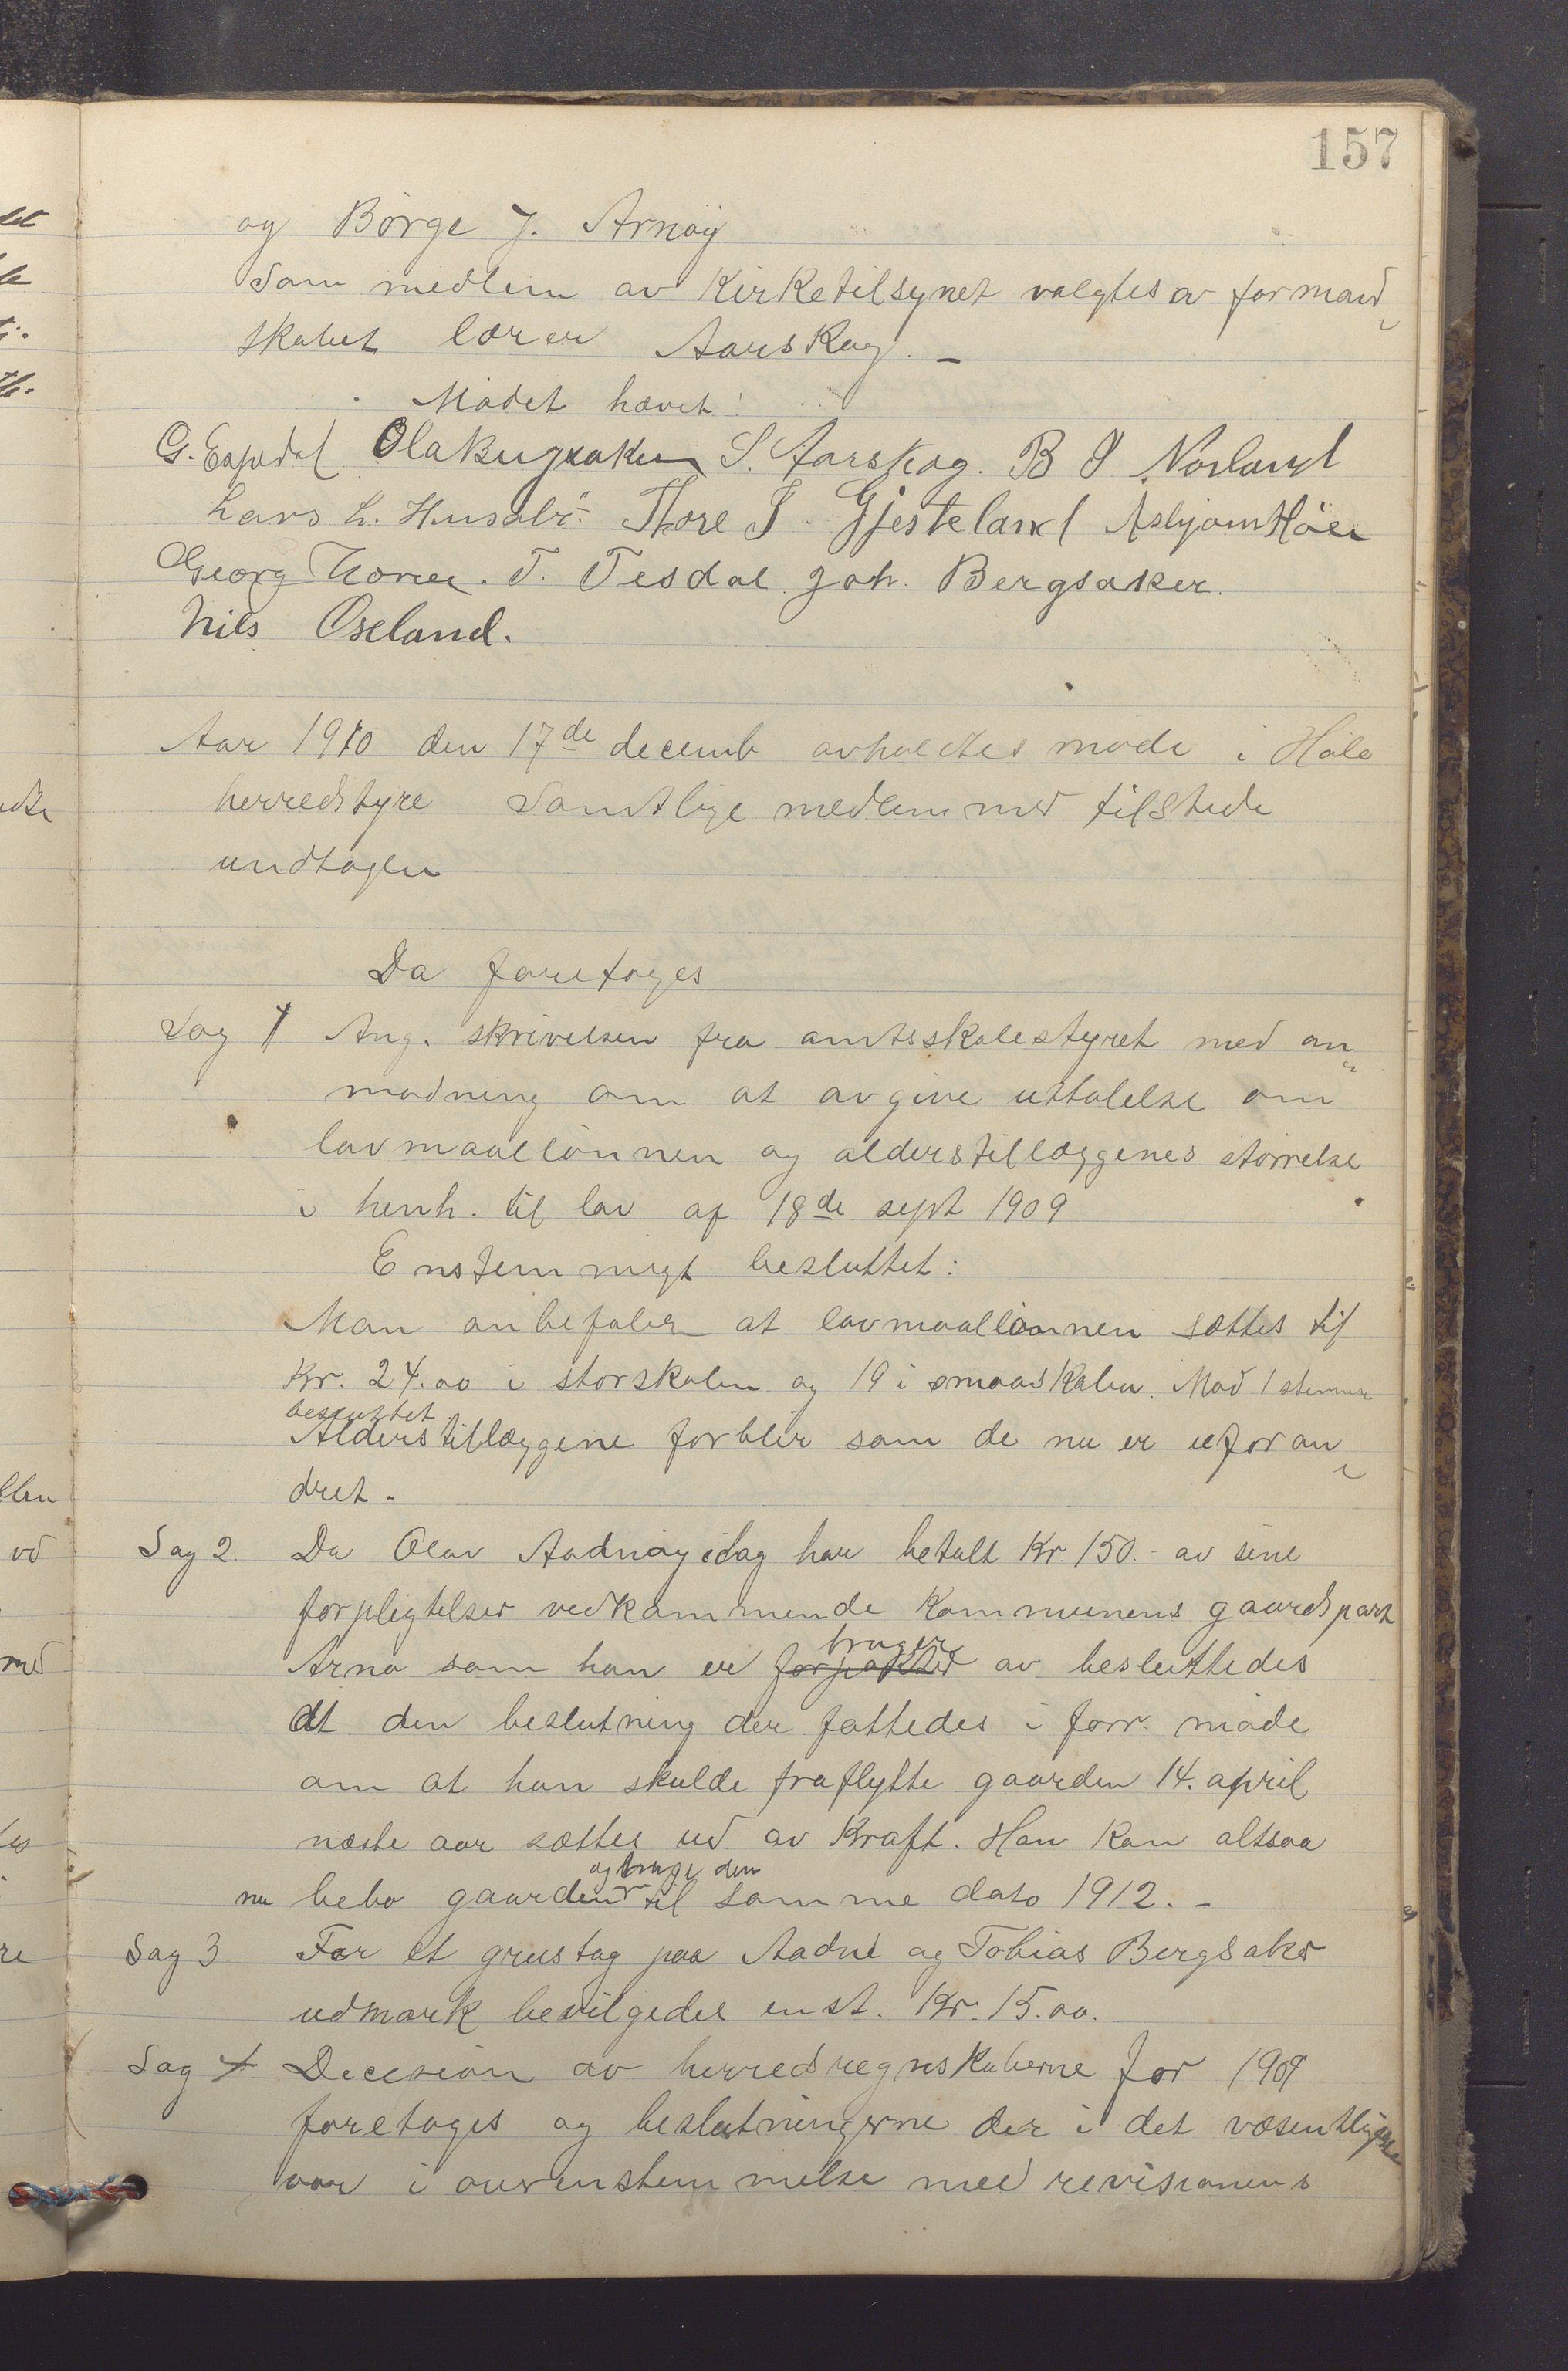 157
og Börge J. Arnöy
Som medlem av Kirketilsynet valgtes av formand
skabet lærer Aarskog. –
Mödet hævet!
G. Espedal Ola Bergsaker S. Aarskog. B J Norland
Lars L. Husabö. Thore J. Gjesteland Asbjörn Höle
Georg Horve. T. Tesdal Joh. Bergsaker.
Nils Öseland.
Aar 1910 den 17de decemb avholdtes möde i Höle
herredstyre Samtlige medlemmer tilstede
undtagen
Da foretoges
Sag 1 Ang. skrivelsen fra amtsskolestyret med an
modning om at avgive uttalelse om
lavmaallönnen og alderstillæggenes störrelse
i henh. til lov af 18de sept 1909
Enstemmigt besluttet:
Man anbefaler at lavmaallönnen sættes til
Kr. 24.00 i storskolen og 19 i smaaskolen. Mod 1 stemme
besluttet
Alderstillæggene forblir som de nu er uforan
dret.
Sag 2. Da Olav Aadnöy idag har betalt Kr. 150.- av sine
forpligtelser vedkommende Kommunens gaardspart
bruger
Arnö som han er forpakter av besluttedes
at den beslutning der fattedes i forr. möde
om at han skulde fraflytte gaarden 14. april
næste aar sættes ud av Kraft. Han kan altsaa
og bruge den
nu bebo gaarden til samme dato 1912. –
Sag 3 For et grustag paa Aadne og Tobias Bergsaker
udmark bevilgedes enst. Kr. 15.00.
Sag 4 Decision av herredsregnskaberne for 1909
foretoges og beslutningerne der i det væsentligste
var i overenstemmelse med revisionens